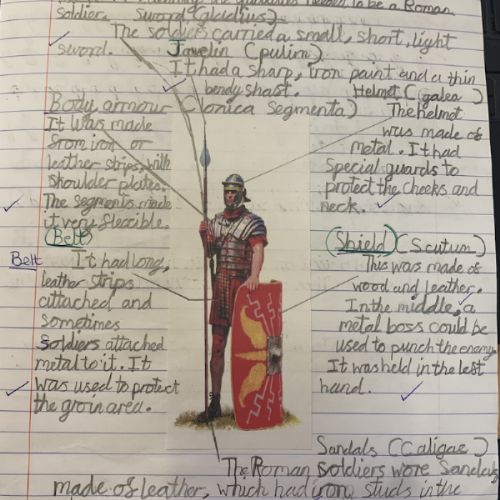 needed to be a Roman
soldier. Sword (gladius)
The soldiers carried a small, short, light
sword. Javelin (pulim)
It had a sharp, iron point and a thin
bendy shaft.
Body armour (lonica Segmenta)
It was made
from iron or
leather strips, with
shoulder plates.
The segments made
it very flexible.
Helmet (galea)
The helmet
was made of
metal. It had
special guards to
protect the cheeks and
neck.
(Belt)
Belt
It had long,
leather strips
attached and
sometimes
soldiers attached
metal to it. It
was used to protect
the groin area.
(Shield) (Scutum)
This was made of
wood and leather.
In the middle, a
metal boss could be
used to punch the enemy.
It was held in the left
hand.
Sandals (Caligae)
The Roman soldiers wore Sandals
made of leather, which had iron studs in the